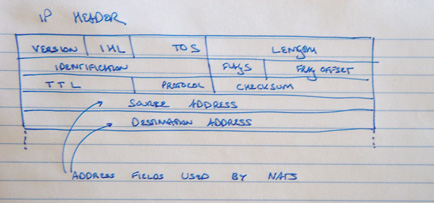 IP HEADER
VERSION IHL TOS LENGTH
IDENTIFICATION FLAGS FRAG OFFSET
TTL PROTOCOL CHECKSUM
SOURCE ADDRESS
DESTINATION ADDRESS
ADDRESS FIELDS USED BY NATS